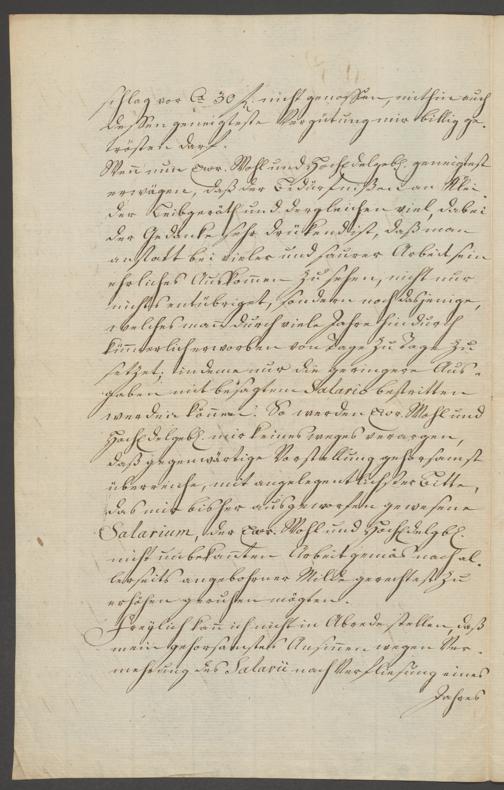 schlag vor Ca 30 f. nicht genossen, mithin auch
dessen geneigteste Vergütung mir billig ge-
trösten darf.
Wenn nun Ewr. Wohl und Hochedelgebl. geneigtest
erwägen, daß der Bedürfnißen an Klei-
der Leibgeräth und dergleichen viel, dabei
der Gedanke sehr drückend ist, daß man
anstatt bei vieler und saurer Arbeit sein
ehrliches Auskommen zu sehen, nicht nur
nichts entübriget, sondern noch dasjenige,
welches man durch viele Jahre hindurch
kümmerlich erworben von Tage zu Tage zu
setzet; indeme nur die geringere Aus-
gaben mit besagtem Salario bestritten
werden können: So werden Ewr. Wohl und
Hochedelgebl. mir keinesweges verargen,
daß gegenwärtige Vorstellung gehorsamst
überreiche, mit angelegentlichster Bitte,
das mir bisher ausgeworfen gewesene
Salarium, der Ewr. Wohl und Hochedelgbl.
nicht unbekannten Arbeit gemäs nach al-
lerseits angebohrner Milde gerechtest zu
erhöhen geruhen mögten.
Freylich kan ich nicht in Abrede stellen, daß
mein gehorsamstes Ansinnen wegen Ver-
mehrung des Salarii nach Verfliesung eines
Jahres